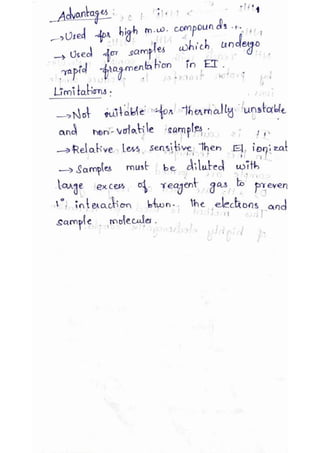 Advantages :
→ Used for high m.w. compounds.
→ Used for samples which undergo
rapid fragmentation in EI.
Limitations :
→ Not suitable for thermally unstable
and non-volatile samples.
→ Relative less sensitive then EI ionizat
→ Samples must be diluted with
large excess of reagent gas to preven
interaction btwn. the electrons and
sample molecules.